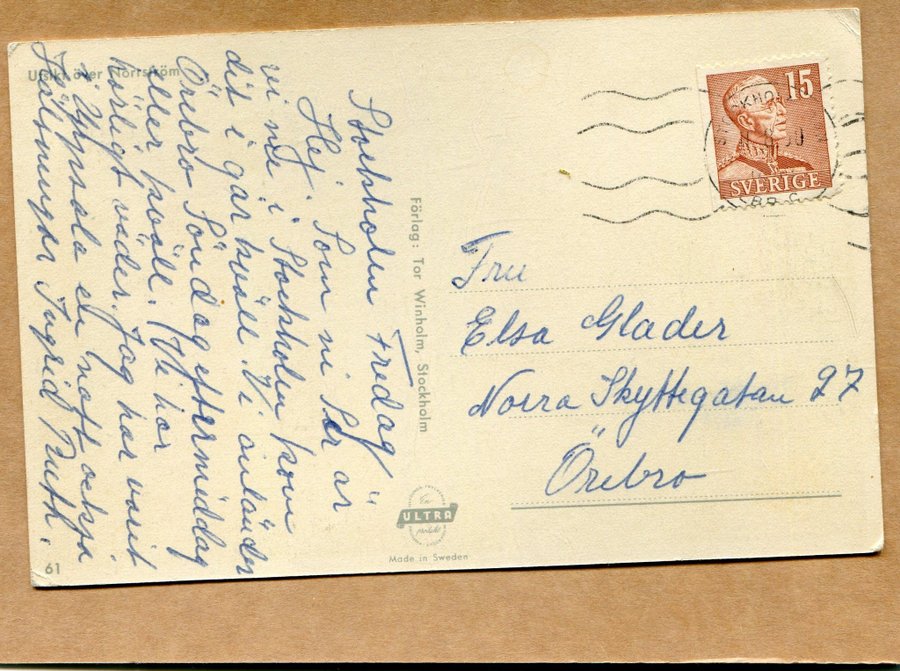 Utsikt över Norrström
Stockholm Fredag
Hej. Som ni ser är
vi nu i Stockholm kom
dit i går kväll. Vi anländer
Örebro Söndag eftermiddag
eller kväll. Vi har
härligt väder. Jag har varit
i Uppsala en natt också
Hälsningar Ingrid Ruth.
Förlag: Tor Winholm, Stockholm
15
SVERIGE
Fru
Elsa Glader
Norra Skyttegatan 27
Örebro
En
ULTRA
Made in Sweden
61